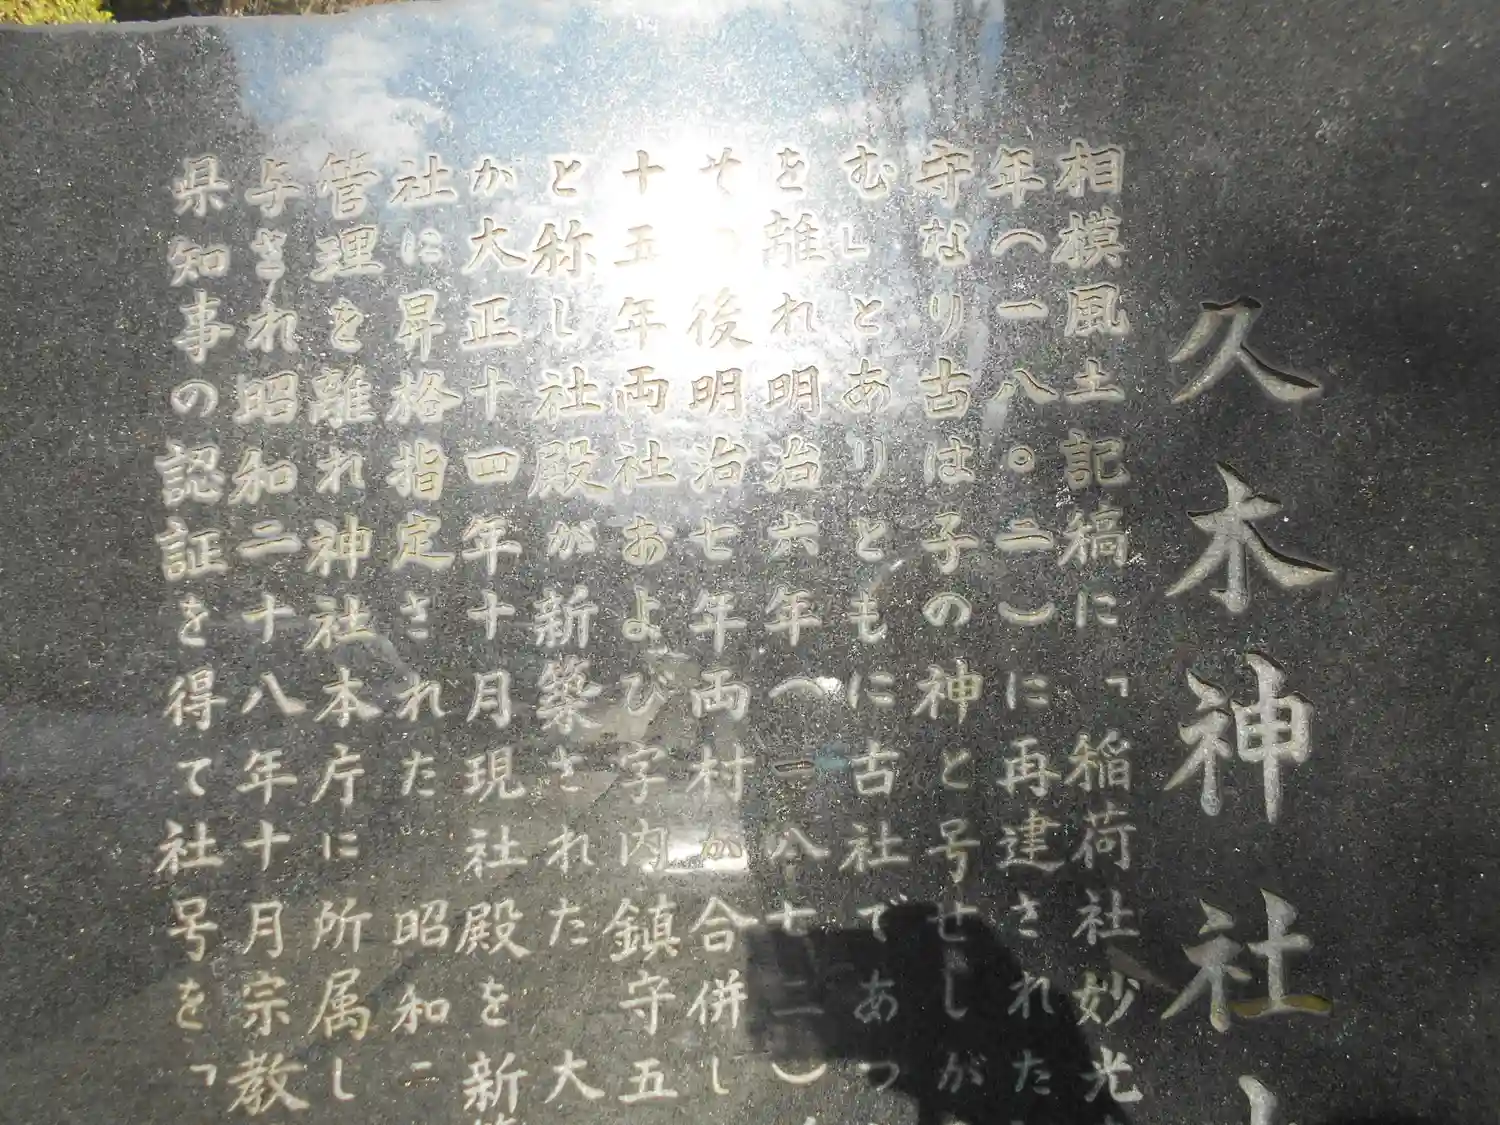 久木神社
相模風土記稿に「稲荷社妙光
年(一八〇二)に再建された
守なり古は子の神と号せしが
む」とありともに古社であっ
を離れ明治六年(一八七二)
その後明治七年両村が合併し
十五年両社および字内鎮守五
と称し社殿が新築された 大
か大正十四年十月現社殿を新
社に昇格指定された 昭和二
管理を離れ神社本庁に所属し
与され昭和二十八年十月宗教
県知事の認証を得て社号を「